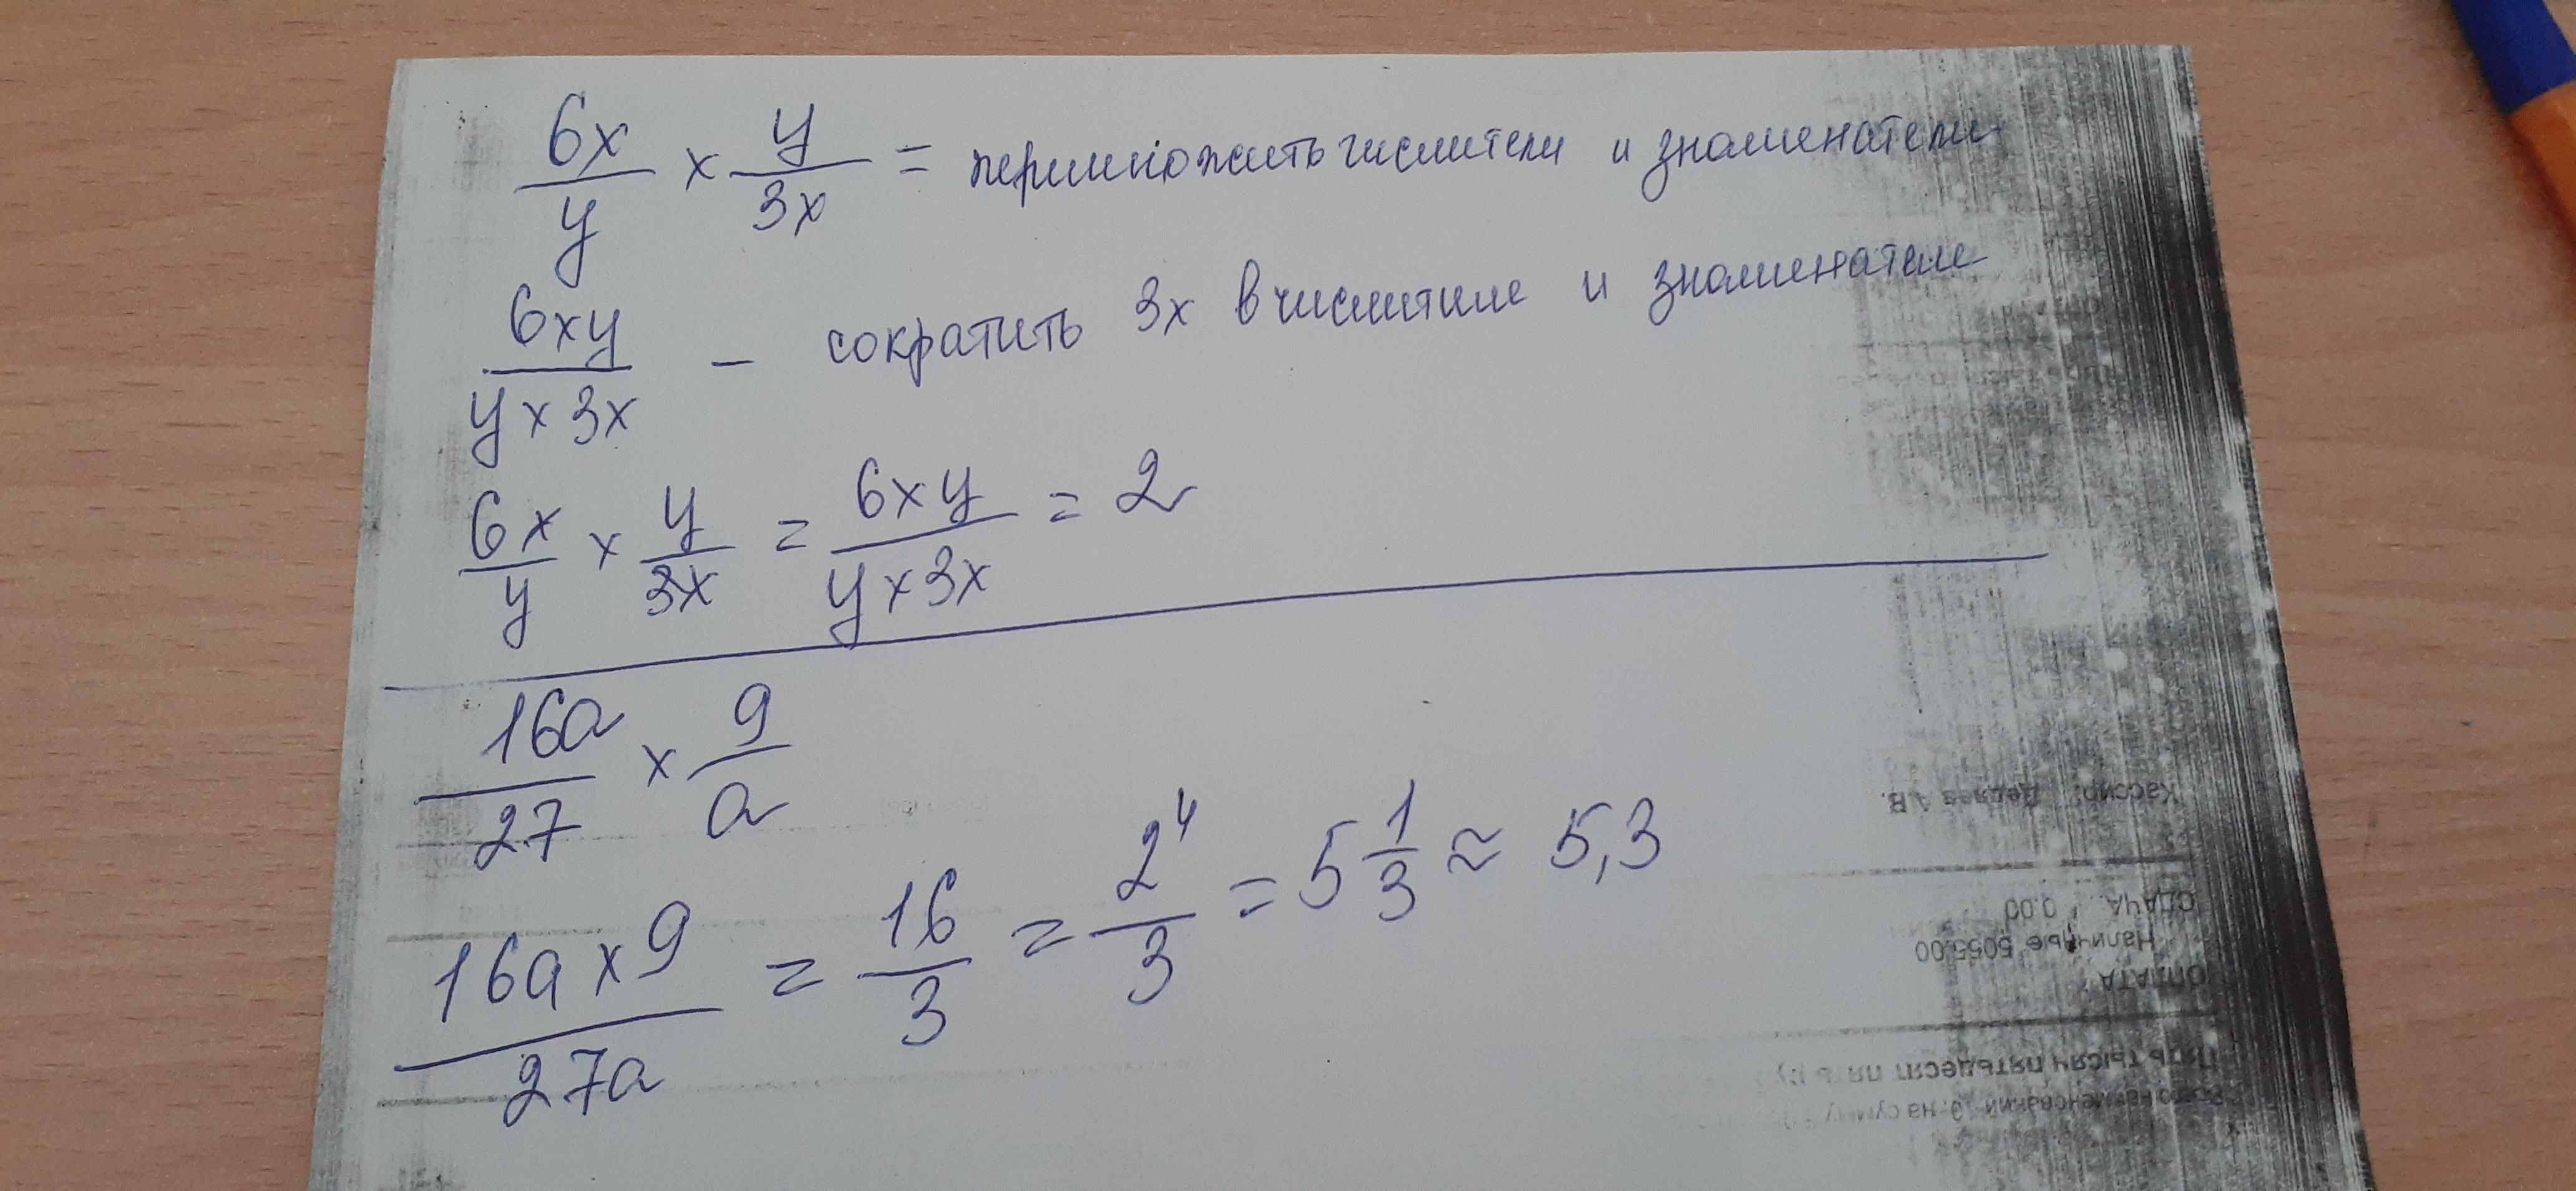 6x/y x y/3x = перемножить числители и знаменатели
6xy/y x 3x – сократить 3x в числителе и знаменателе
6x/y x y/3x = 6xy/y x 3x = 2
16a/27 x 9/a
16a x 9/27a = 16/3 = 2⁴/3 = 5 1/3 ≈ 5,3
Кассир:
СДАЧА 0.00
Наличные 5055.00
ОПЛАТА
Пять тысяч пятьдесят пять
наименований 9, на сумму